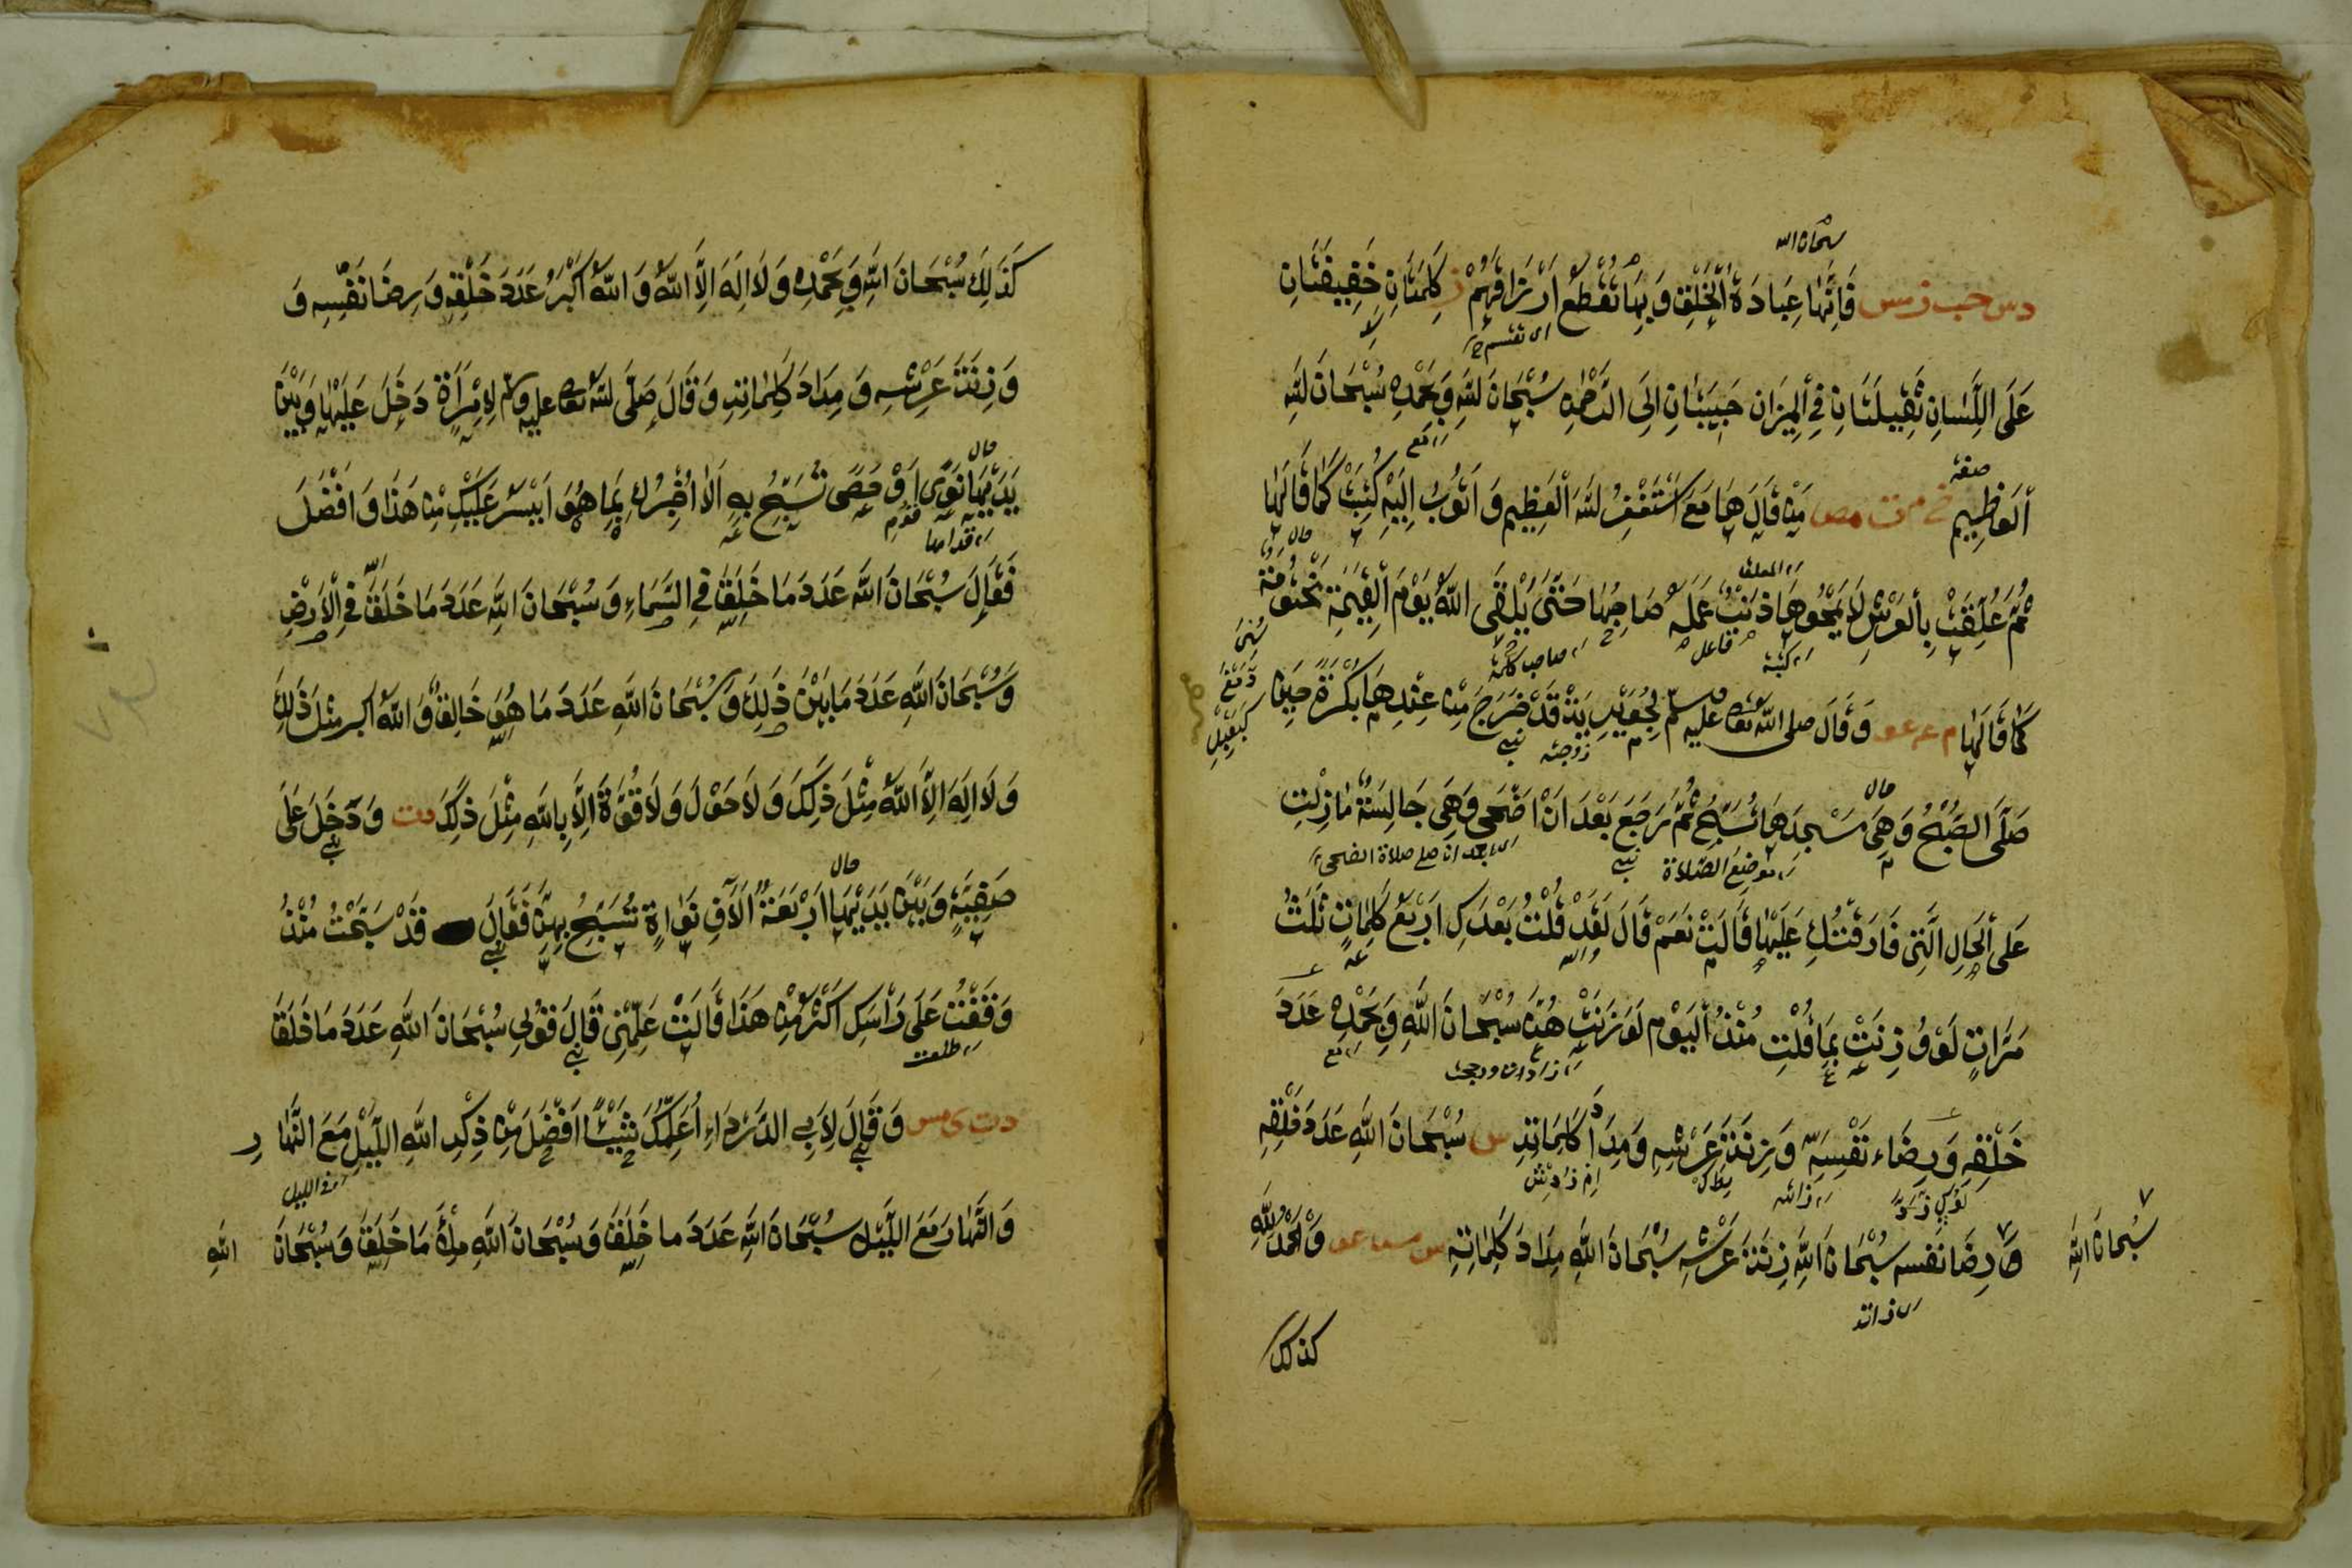 سبحان الله
دس حب ز مس فَاِنَّهَا عِبَادَةُ الْخَلْقِ وَ بِهَا تُقْطَعُ اَرْزَاقُهُمْ ز كَلِمَتَانِ خَفِيفَتَانِ
اى تقسم
عَلَى اللِّسَانِ ثَقِيلَتَانِ فِي الْمِيزَانِ حَبِيبَتَانِ اِلَى الرَّحْمٰنِ سُبْحَانَ اللّٰهِ وَبِحَمْدِهِ سُبْحَانَ اللّٰهِ
صفة
الْعَظِيمِ خ م ت مص مَنْ قَالَهَا مَعَ اَسْتَغْفِرُ اللّٰهَ الْعَظِيمَ وَ اَتُوبُ اِلَيْهِ كُتِبَتْ كَمَا قَالَهَا
ثُمَّ عُلِّقَتْ بِالْعَرْشِ لَا يَمْحُوهَا ذَنْبٌ عَمِلَهُ صَاحِبُهَا حَتّٰى يَلْقَى اللّٰهَ يَوْمَ الْقِيٰمَةِ مَخْتُومَةً
فاعل
كَمَا قَالَهَا م عه عو وَ قَالَ صلى اللّٰه تعالى عليه وسلم لِجُوَيْرِيَةَ قَدْ خَرَجَ مِنْ عِنْدِهَا بُكْرَةً حِينَ
زوجته
حال
صَلَّى الصُّبْحَ وَ هِيَ مَسْجِدَهَا تُسَبِّحُ ثُمَّ رَجَعَ بَعْدَ اَنْ اَضْحٰى وَهِيَ جَالِسَةٌ مَا زِلْتِ
موضع الصلاة
اى بعد ان صلى صلاة الضحى
عَلَى الْحَالِ الَّتِي فَارَقْتُكِ عَلَيْهَا قَالَتْ نَعَمْ قَالَ لَقَدْ قُلْتُ بَعْدَكِ اَرْبَعَ كَلِمَاتٍ ثَلٰثَ
والله
مَرَّاتٍ لَوْ وُزِنَتْ بِمَا قُلْتِ مُنْذُ الْيَوْمِ لَوَزَنَتْهُنَّ سُبْحَانَ اللّٰهِ وَبِحَمْدِهِ عَدَدَ
خَلْقِهِ وَ رِضَاءَ نَفْسِهِ وَ زِنَةَ عَرْشِهِ وَ مِدَادَ كَلِمَاتِهِ س سُبْحَانَ اللّٰهِ عَدَدَ خَلْقِهِ
سُبْحَانَ اللّٰهِ
وَ رِضَا نفسه سُبْحَانَ اللّٰهِ زِنَةَ عَرْشِهِ سُبْحَانَ اللّٰهِ مِدَادَ كَلِمَاتِهِ س مس عو وَ الْحَمْدُ لِلّٰهِ
كذلك
كَذٰلِكَ سُبْحَانَ اللّٰهِ وَبِحَمْدِهِ وَ لَا اِلٰهَ اِلَّا اللّٰهُ وَ اللّٰهُ اَكْبَرُ عَدَدَ خَلْقِهِ وَ رِضَا نَفْسِهِ وَ
وَ زِنَةَ عَرْشِهِ وَ مِدَادَ كَلِمَاتِهِ وَ قَالَ صَلَّى اللّٰهُ تعالى عليه وسلم لِامْرَأَةٍ دَخَلَ عَلَيْهَا وَ بَيْنَ
حال
يَدَيْهَا نَوًى اَوْ حَصًى تُسَبِّحُ بِهِ اَلَا اُخْبِرُكِ بِمَا هُوَ اَيْسَرُ عَلَيْكِ مِنْ هٰذَا وَ اَفْضَلُ
قدامها
فَقَالَ سُبْحَانَ اللّٰهِ عَدَدَ مَا خَلَقَ فِي السَّمَاءِ وَ سُبْحَانَ اللّٰهِ عَدَدَ مَا خَلَقَ فِي الْاَرْضِ
وَ سُبْحَانَ اللّٰهِ عَدَدَ مَا بَيْنَ ذٰلِكَ وَ سُبْحَانَ اللّٰهِ عَدَدَ مَا هُوَ خَالِقٌ وَ اللّٰهُ اكبر مِثْلَ ذٰلِكَ
وَ لَا اِلٰهَ اِلَّا اللّٰهُ مِثْلَ ذٰلِكَ وَ لَا حَوْلَ وَ لَا قُوَّةَ اِلَّا بِاللّٰهِ مِثْلَ ذٰلِكَ دت وَ دَخَلَ عَلٰى
حال
صَفِيَّةَ وَ بَيْنَ يَدَيْهَا اَرْبَعَةُ اٰلَافِ نَوَاةٍ تُسَبِّحُ بِهِنَّ فَقَالَ قَدْ سَبَّحْتُ مُنْذُ
وَقَفْتُ عَلٰى رَأْسِكِ اَكْثَرَ مِنْ هٰذَا قَالَتْ عَلِّمْنِي قَالَ قُولِي سُبْحَانَ اللّٰهِ عَدَدَ مَا خَلَقَ
دت ى مس وَ قَالَ لِاَبِي الدَّرْدَاءِ اُعَلِّمُكَ شَيْئًا اَفْضَلَ مِنْ ذِكْرِ اللّٰهِ اللَّيْلَ مَعَ النَّهَارِ
وَ النَّهَارَ مَعَ اللَّيْلِ سُبْحَانَ اللّٰهِ عَدَدَ ما خَلَقَ وَ سُبْحَانَ اللّٰهِ مِلْأَ مَا خَلَقَ وَ سُبْحَانَ اللّٰهِ